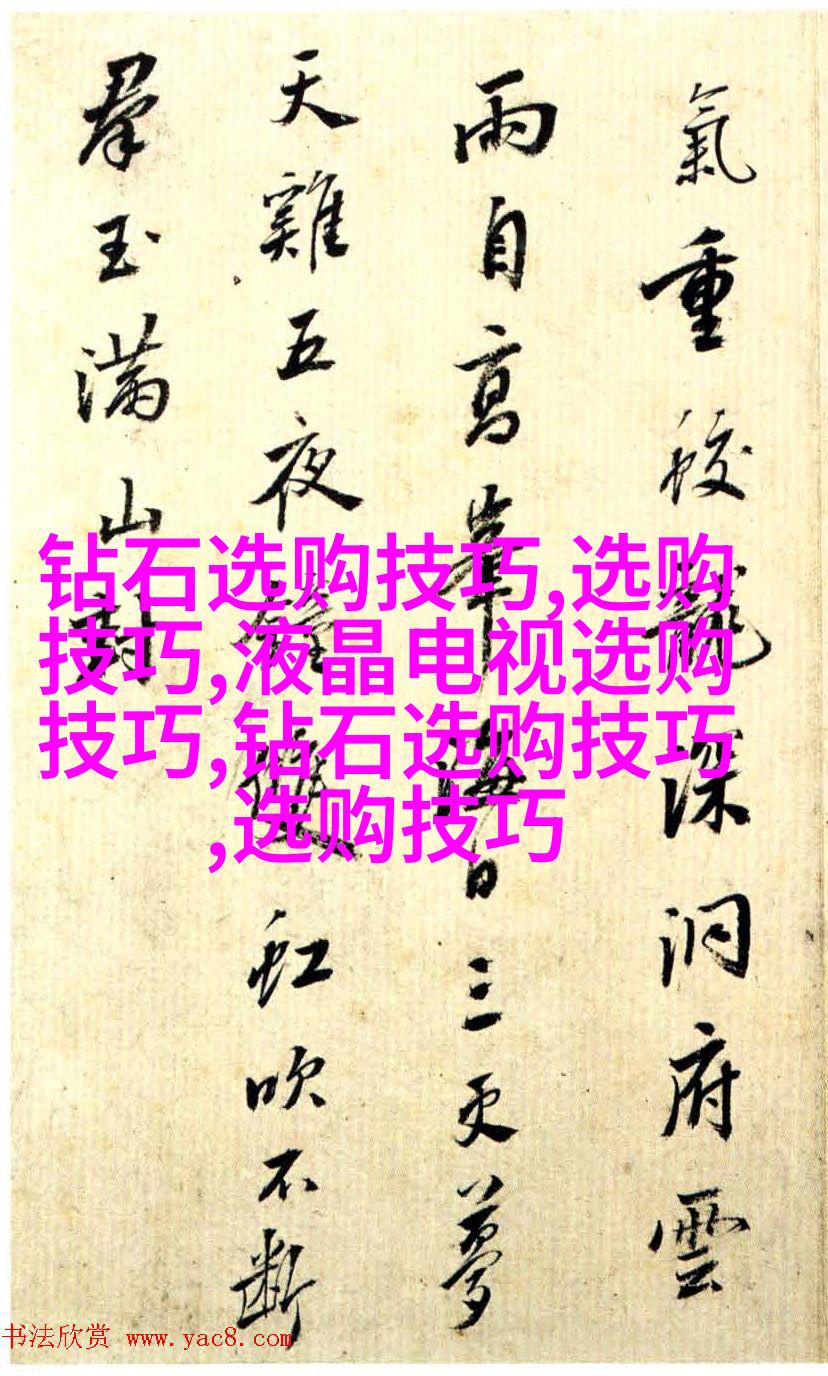 氣重蛟龍深洞府雲
雨自高峯海日三更夢
天雞五夜鐘 虹吹不斷
羣玉滿山封
钻石选购技巧,选购
技巧,液晶电视选购
技巧,钻石选购技巧
,选购技巧
书法欣赏 www.yac8.com